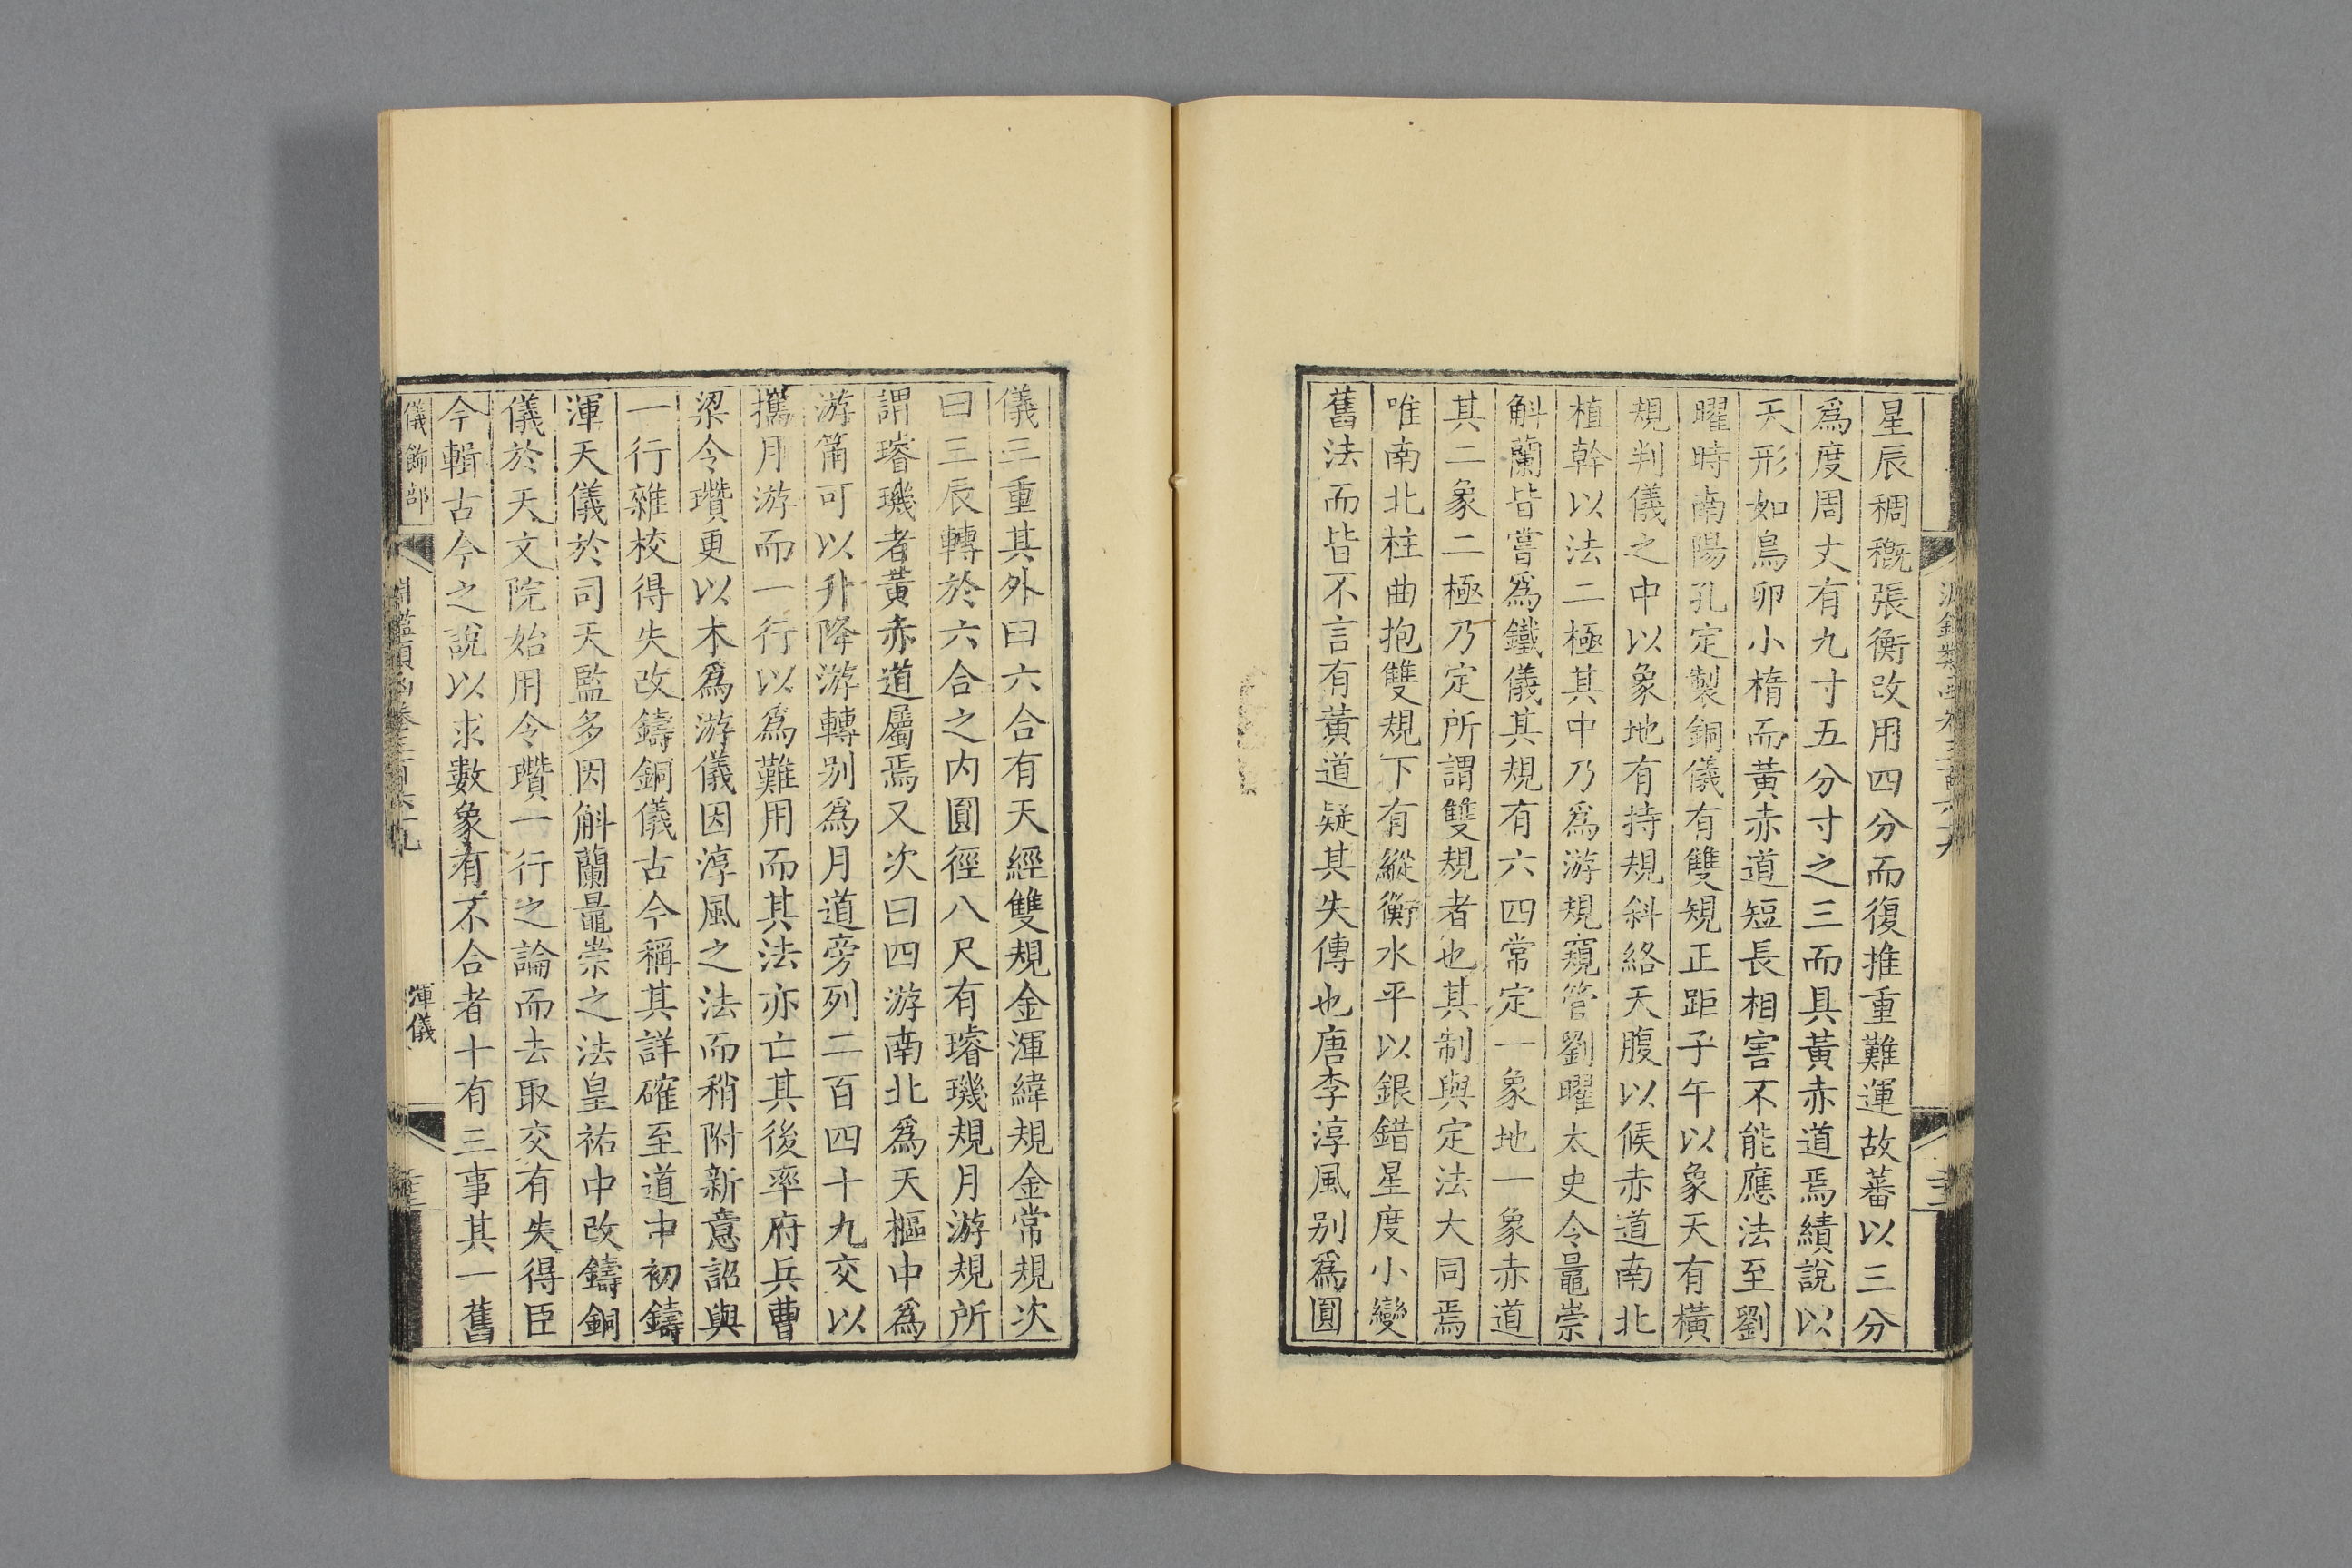 星辰稠穊張衡改用四分而復推重難運故蕃以三分
爲度周丈有九寸五分寸之三而具黃赤道焉績說以
天形如鳥卵小楕而黃赤道短長相害不能應法至劉
曜時南陽孔定製銅儀有雙規正距子午以象天有橫
規判儀之中以象地有持規斜絡天腹以候赤道南北
植幹以法二極其中乃爲游規窺管劉曜太史令鼂崇
斛蘭皆嘗爲鐵儀其規有六四常定一象地一象赤道
其二象二極乃定所謂雙規者也其制與定法大同焉
唯南北柱曲抱雙規下有縱衡水平以銀錯星度小變
舊法而皆不言有黃道疑其失傳也唐李淳風别爲圓
儀三重其外曰六合有天經雙規金渾緯規金常規次
曰三辰轉於六合之内圓徑八尺有璿璣規月游規所
謂璿璣者黃赤道屬焉又次曰四游南北爲天樞中爲
游筩可以升降游轉别爲月道旁列二百四十九交以
攜月游而一行以爲難用而其法亦亡其後率府兵曹
梁令瓚更以木爲游儀因淳風之法而稍附新意詔與
一行雜校得失改鑄銅儀古今稱其詳確至道中初鑄
渾天儀於司天監多因斛蘭鼂崇之法皇祐中改鑄銅
儀於天文院始用令瓚一行之論而去取交有失得臣
今輯古今之說以求數象有不合者十有三事其一舊
儀飾部
渾儀